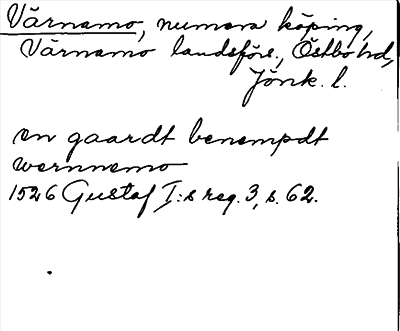 Värnamo, numera köping,
Värnamo landsförs., Östbo hd,
Jönk. l.
en gaardt benempdt
wernnemo
1526 Gustaf I:s reg. 3, s. 62.